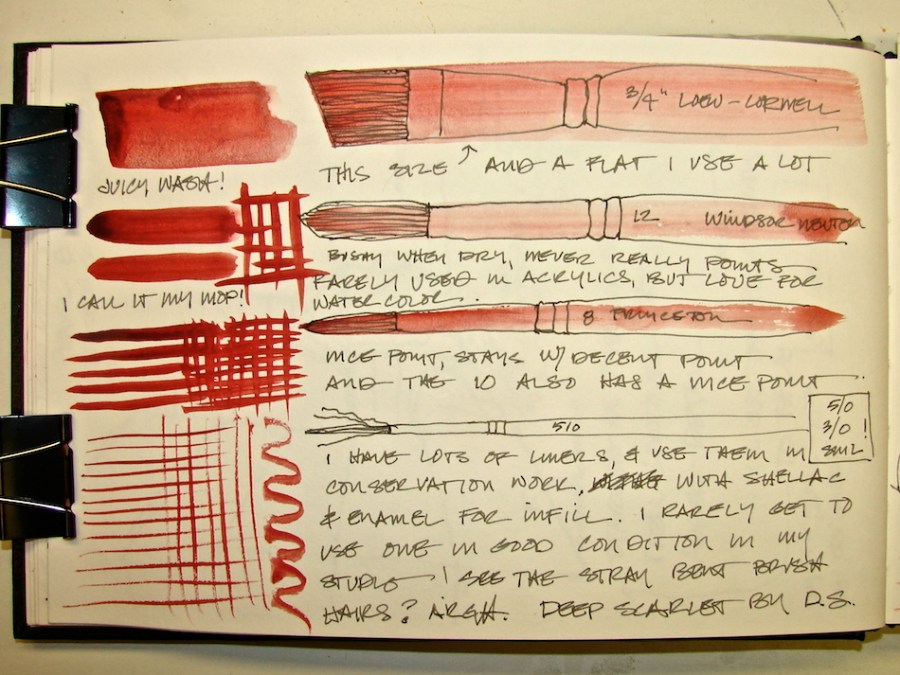 3/4" LOEW-CORNELL
THIS SIZE ↑ AND A FLAT I USE A LOT
JUICY WASH!
12 WINDSOR NEWTON
BUSHY WHEN DRY, NEVER REALLY POINTS
RARELY USED IN ACRYLICS, BUT LOVE FOR
WATERCOLOR.
I CALL IT MY MOP!
8 PRINCETON
NICE POINT, STAYS W/ DECENT POINT
AND THE 10 ALSO HAS A NICE POINT.
5/0
5/0
3/0 !
I HAVE LOTS OF LINERS, & USE THEM IN
CONSERVATION WORK, WITH SHELLAC
& ENAMEL FOR INFILL. I RARELY GET TO
USE ONE IN GOOD CONDITION IN MY
STUDIO! SEE THE STRAY BENT BRUSH
HAIRS? ARGH. DEEP SCARLET BY D.S.